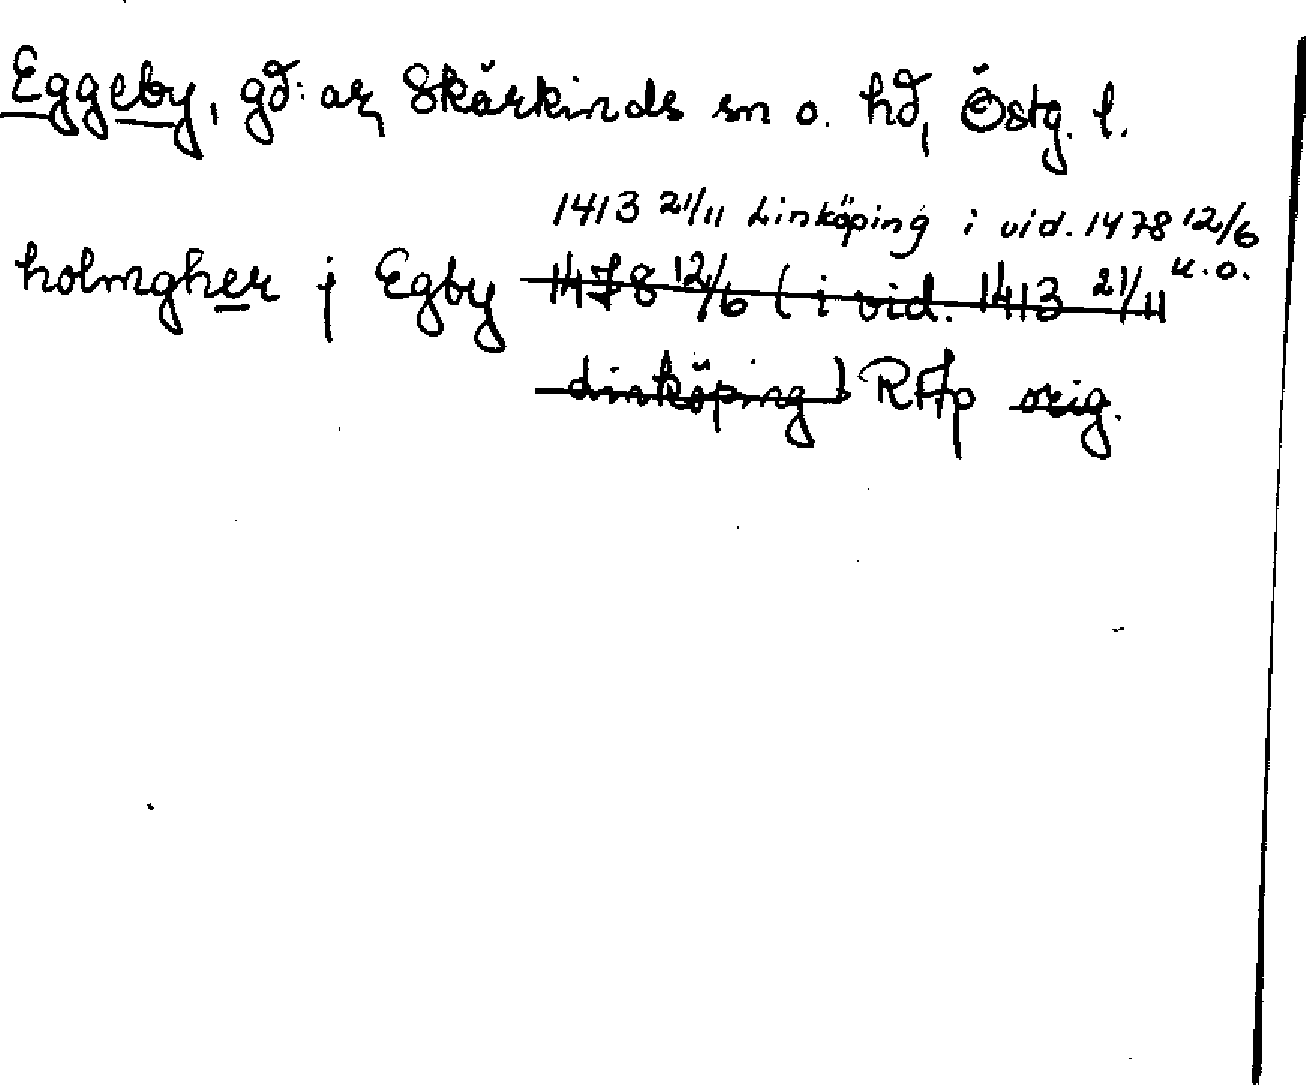 Eggeby, gd:ar, Skärkinds sn o. hd, Östg. l.
1413 21/11 Linköping i vid. 1478 12/6
u.o.
holmgher j Egby 1478 12/6 (i vid. 1413 21/11
Linköping) RAp orig.